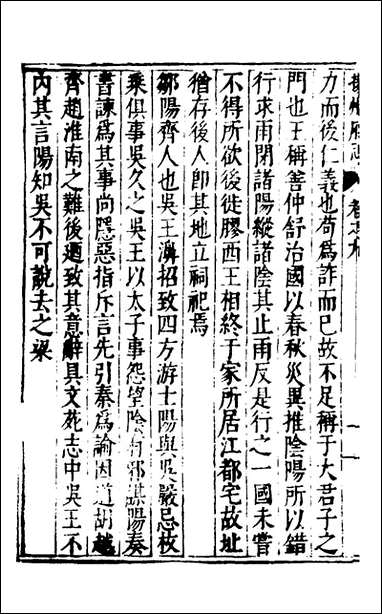 力而後仁義也苟爲詐而巳故不足稱于大君子之
門也王稱善仲舒治國以春秋災異推陰陽所以錯
行求雨閉諸陽縱諸陰其止雨反是行之一國未嘗
不得所欲後徙膠西王相終于家所居江都宅故址
猶存後人卽其地立祠祀焉
鄒陽齊人也吳王濞招致四方游士陽與吳嚴忌枚
乘俱事吳久之吳王以太子事怨望陰有邪謀陽奏
書諫爲其事尚隱惡指斥言先引秦爲諭因道胡越
齊趙淮南之難後廼致其意辭具文苑志中吳王不
內其言陽知吳不可說去之梁